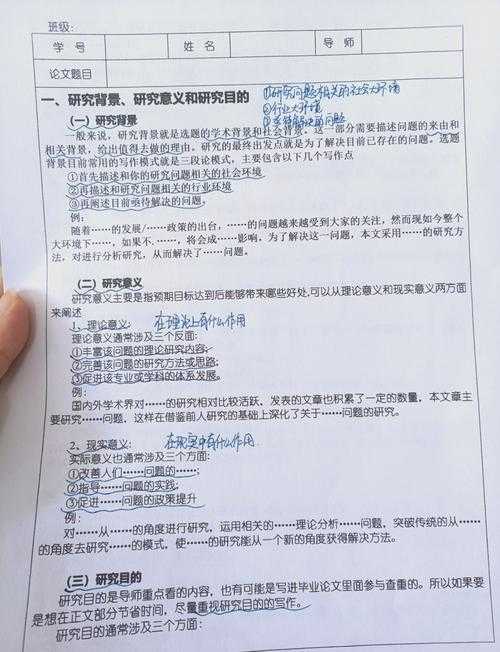 班级：
学 号 姓 名 导 师
论文题目
一、研究背景、研究意义和研究目的
①研究问题相关的社会大环境
②行业大环境
（一）研究背景
③亟待解决的问题
一般来说，研究背景就是选题的学术背景和社会背景。这一部分需要描述问题的来由和
相关背景，给出值得去做的理由。研究的最终出发点就是为了解决目前已存在的问题。选题
背景目前常用的写作模式就是三段论模式，主要包含以下几个写作点
①首先描述和你的研究问题相关的社会环境
②再描述和研究问题相关的行业环境
③再阐述目前亟待解决的问题。
例：
随着……的发展/……政策的出台，……的问题越来越受到大家的关注，然而现如今整个
大环境下……，如果不……，将会成……影响，为了解决这一问题，本文采用……的研究方
法，对进行分析研究，从而解决了……问题。
（二）研究意义
研究意义主要是指预期目标达到后能够带来哪些好处,可以从理论意义和现实意义两方面
来阐述
1、理论意义： 在理论上有什么作用
理论意义通常涉及三个反面:
①丰富该问题的理论研究内容;
②完善该问题的研究方法或思路;
③促进该专业或学科的体系发展。
例：
国内外学术界对……的研究相对比较活跃，发表的文章也积累了一定的数量，本文章主
要研究……问题，这样在借鉴前人研究的基础上深化了关于……问题的研究。
2、现实意义： 在现实中有什么作用
实际意义也通常涉及三个方面:
①改善人们……问题的……;
②指导……问题的实践;
③促进……问题的政策提升
例：
对……从……的角度进行研究，运用相关的……理论分析……问题，突破传统的从……
的角度去研究……的模式，使……的研究能从一个新的角度获得解决方法。
（三）研究目的
研究目的是导师重点看的内容，也有可能是写进毕业论文里面参与查重的。所以如果要
是想在正文部分节省时间，尽量重视研究目的的写作。
研究目的通常涉及三个方面: